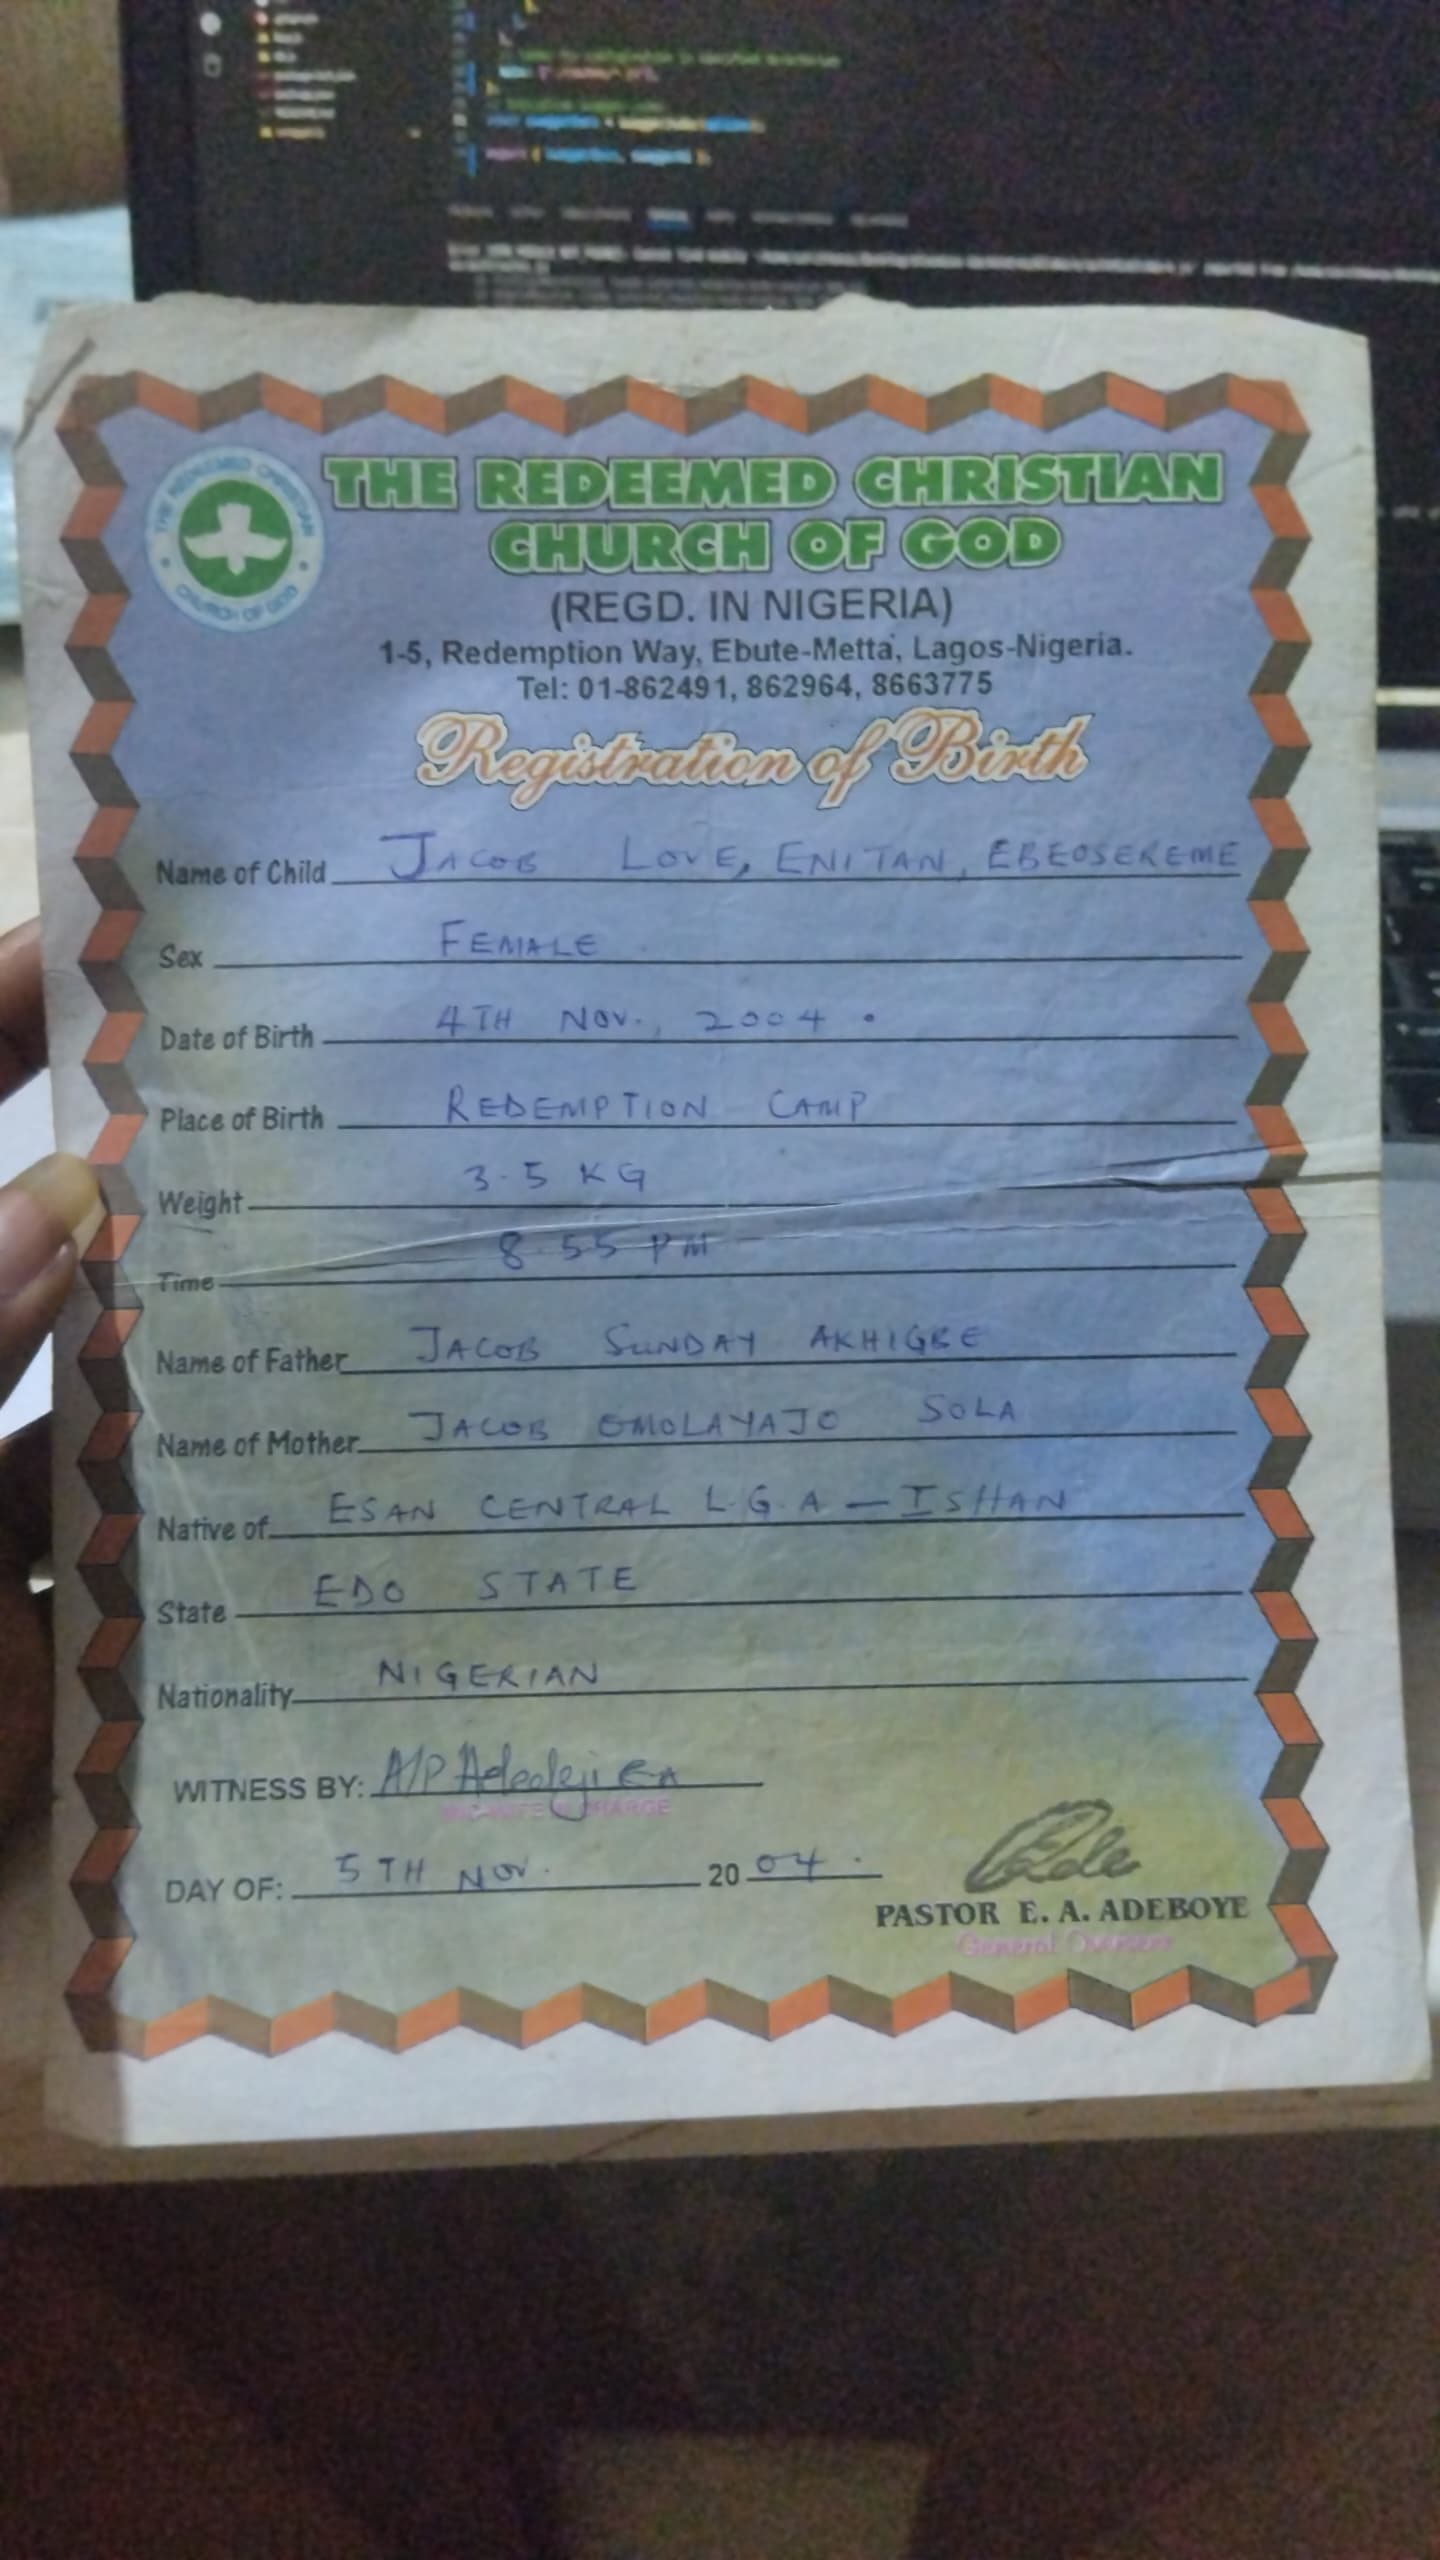 THE REDEEMED CHRISTIAN
CHURCH OF GOD
THE REDEEMED CHRISTIAN
CHURCH OF GOD
(REGD. IN NIGERIA)
1-5, Redemption Way, Ebute-Metta, Lagos-Nigeria.
Tel: 01-862491, 862964, 8663775
Registration of Birth
Name of Child JACOB LOVE, ENITAN, EBEOSEREME
Sex FEMALE
Date of Birth 4TH NOV., 2004.
Place of Birth REDEMPTION CAMP
Weight 3.5 KG
Time 8.55 PM
Name of Father JACOB SUNDAY AKHIGBE
Name of Mother JACOB OMOLAYAJO SOLA
Native of ESAN CENTRAL L.G.A - ISHAN
State EDO STATE
Nationality NIGERIAN
WITNESS BY: A/P Adedeji EA
CHARGE
DAY OF: 5TH NOV. 2004.
PASTOR E. A. ADEBOYE
General Overseer